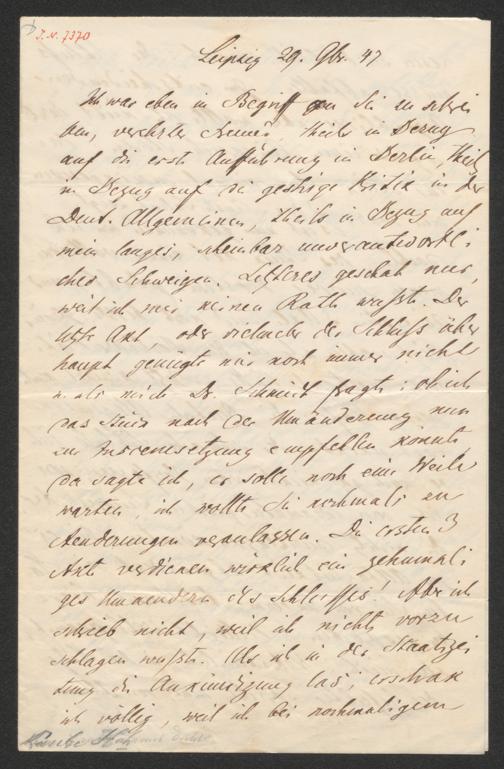 I.N. 7370
Leipzig 29. 9br. 47
Ich war eben in Begriff an Sie zu schrei
ben, verehrter Freund, theils in Bezug
auf die erste Aufführung in Berlin, theils
in Bezug auf die gestrige Kritik in der
Deut. Allgemeinen, theils in Bezug auf
mein langes, scheinbar unverantwortli
ches Schweigen. Letzteres geschah nur,
weil ich mir keinen Rath wußte. Der
letzte Akt, oder vielmehr der Schluß über
haupt genügte mir noch immer nicht
u. als mich Dr. Schmidt fragte: ob ich
das Stück nach der Umänderung nun
zur Inscenesetzung empfehlen könnte,
da sagte ich, er solle noch eine Weile
warten, ich wollte Sie nochmals zu
Aenderungen veranlassen. Die ersten 3
Akte verdienen wirklich ein zehnmali
ges Umaendern des Schlusses! Aber ich
schrieb nicht, weil ich nichts vorzu
schlagen wußte. Als ich in der Staatszei
tung die Ankündigung las, erschrak
ich völlig, weil ich bei nochmaligem